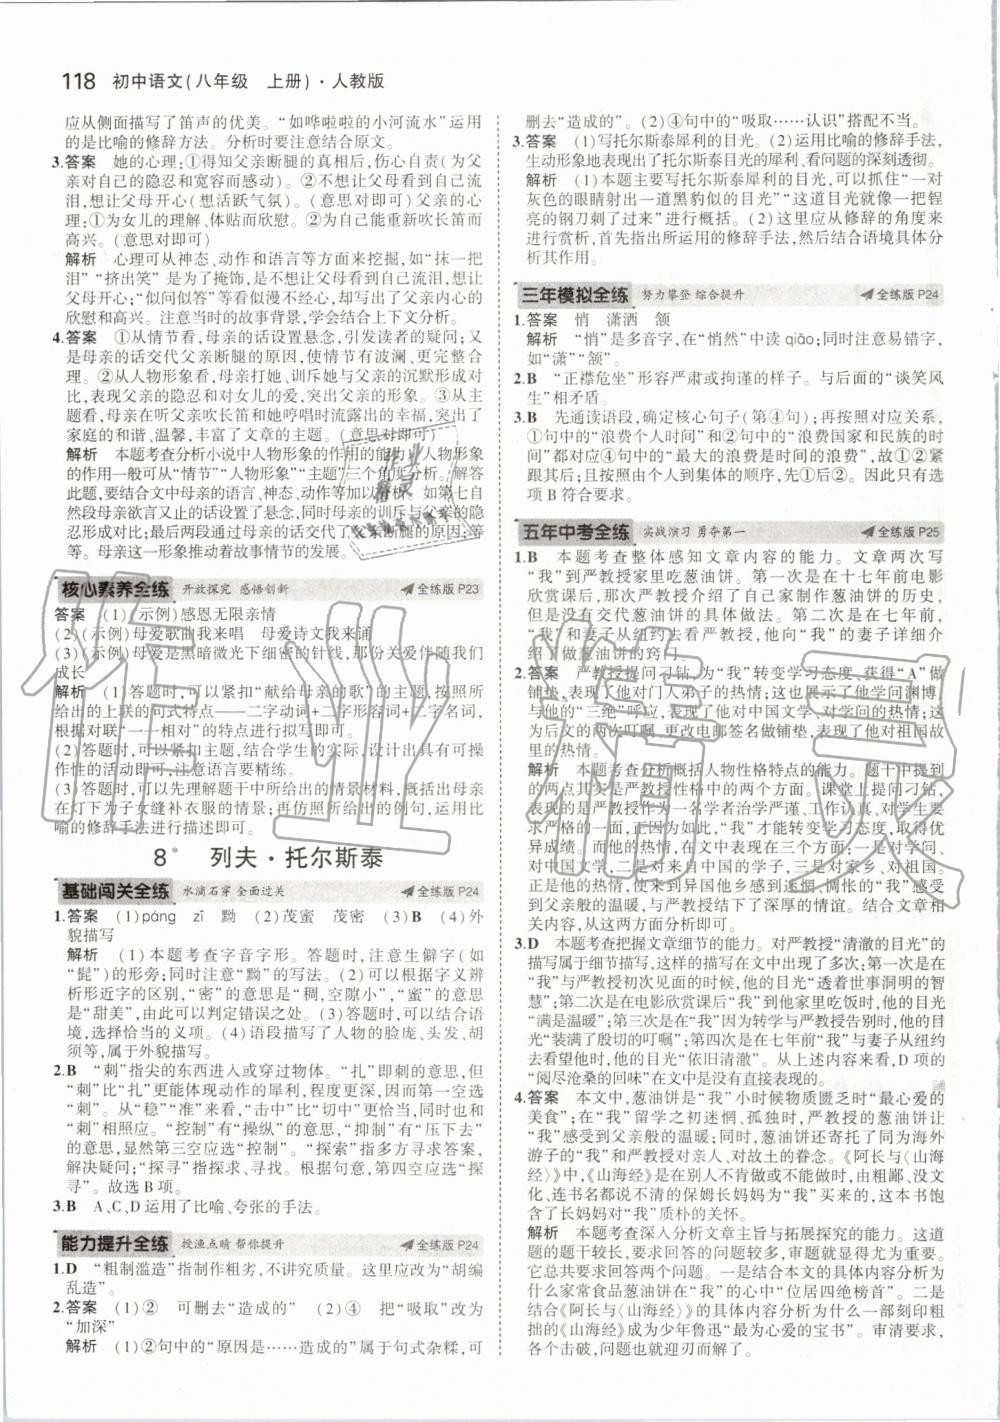 118 初中语文(八年级 上册)·人教版
应从侧面描写了笛声的优美。“如哗啦啦的小河流水”运用
的是比喻的修辞方法。分析时要注意结合原文。
3.答案 她的心理:①得知父亲断腿的真相后,伤心自责(为父
亲对自己的隐忍和宽容而感动)。②不想让父母看到自己流
泪,想让父母开心(想活跃气氛)。(意思对即可)父亲的心
理:①为女儿的理解、体贴而欣慰。②为自己能重新吹长笛而
高兴。(意思对即可)
解析 心理可从神态、动作和语言等方面来挖掘,如“抹一把
泪”“挤出笑”是为了掩饰,是不想让父母看到自己流泪,想让
父母开心;“似问似答”等可以看出父亲得到女儿的体谅,内心的
欣慰和高兴。注意当时的故事背景,学会结合上下文分析。
4.答案 ①从情节看,母亲的话设置悬念,引发读者的疑问,又
是母亲的话交代父亲断腿的原因,使情节有波澜、更完
整。②从人物形象看,母亲打她、训斥她与父亲的沉默形成对
比,表现父亲的隐忍和对女儿的爱,突出父亲的形象。③从主
题看,母亲在听父亲吹长笛和她哼唱时流露出的高兴,突出了
家庭的和谐、温馨,丰富了文章的主题。(意思对即可)
解析 本题考查分析小说中人物形象的作用的能力。人物形象
的作用一般可从“情节”“人物形象”“主题”三个角度分析。解答
此题,要结合文中母亲的语言、神态、动作等加以分析。如第七自
然段母亲欲言又止的话设置了悬念,同时母亲的训斥与父亲的隐
忍形成对比;最后两段通过母亲的话交代了父亲断腿的原因;等
等。母亲这一形象推动着故事情节的发展。
核心素养全练 开放探究 感悟创新 全练版 P23
答案 (1)(示例)感恩无限亲情
(2)(示例)母爱歌曲我来唱 母爱诗文我来诵
(3)(示例)母爱是黑暗微光下细密的针线,那份关爱伴随我们
成长
解析 (1)答题时,可以紧扣“献给母亲的歌”的主题,按照所
给出的上联的句式特点——二字动词+二字形容词+二字名词,
根据对联“一一相对”的特点进行拟写即可。
(2)答题时,可以紧扣主题,结合学生的实际,设计出具有可操
作性的活动即可,注意语言要精练。
(3)答题时,可以先理解题干中所给出的情景材料,概括出母亲
在灯下为子女缝补衣服的情景;再仿照所给出的例句,运用比
喻的修辞手法进行描述即可。
8* 列夫·托尔斯泰
基础闯关全练 水滴石穿 全面过关 全练版 P24
1.答案 (1)páng zī 黝 (2)茂蜜 茂密 (3)B (4)外
貌描写
解析 (1)本题考查字音字形。答题时,注意生僻字(如
“髭”)的形旁;同时注意“黝”的写法。(2)可以根据字义辨
析形近字的区别,“密”的意思是“稠,空隙小”,“蜜”的意思
是“甜美”,由此可以判定错误之处。(3)可以结合语
境,选择恰当的义项。(4)语段描写了人物的脸庞、头发、胡
须等,属于外貌描写。
2.B “刺”指尖的东西进入或穿过物体。“扎”即刺的意思,但
“刺”比“扎”更能体现动作的犀利,程度更深,因而第一空选
“刺”。从“稳”“准”来看,“击中”比“切中”更合适,也和
“刺”相照应。“控制”有“操纵”的意思,“抑制”有“压下去”
的意思,显然第三空应选“控制”。“探索”指多方寻求答案,
解决疑问;“探寻”指探求、寻找。根据句意,第四空应选“探
寻”。故选 B 项。
3.B A、C、D 运用了比喻、夸张的手法。
能力提升全练 授渔点睛 帮你提升 全练版 P24
1.D “粗制滥造”指制作粗劣,不讲究质量。这里应改为“胡编
乱造”。
2.答案 (1)② 可删去“造成的” (2)④ 把“吸取”改为
“加深”
解析 (1)②句中的“原因是……造成的”属于句式杂糅,可
删去“造成的”。(2)④句中的“吸取……认识”搭配不当。
3.答案 (1)写托尔斯泰犀利的目光。(2)运用比喻的修辞手法,
生动形象地表现出了托尔斯泰目光的犀利、看问题的深刻透彻。
解析 (1)本题主要写托尔斯泰犀利的目光,可以抓住“一对
灰色的眼睛射出一道黑豹似的目光”“这道目光就像一把锃
亮的钢刀刺了过来”进行概括。(2)这里应从修辞的角度来
进行赏析,首先指出所运用的修辞手法,然后结合语境具体分
析其作用。
三年模拟全练 努力攀登 综合提升 全练版 P24
1.答案 悄 潇洒 颔
解析 “悄”是多音字,在“悄然”中读 qiǎo;同时注意易错字,
如“潇”“颔”。
2.B “正襟危坐”形容严肃或拘谨的样子。与后面的“谈笑风
生”相矛盾。
3.B 先通读语段,确定核心句子(第④句);再按照对应关系,
①句中的“浪费个人时间”和②句中的“浪费国家和民族的时
间”都对应④句中的“最大的浪费是时间的浪费”,故①②紧
跟其后;且要按个人到集体的顺序,先①后②。因此只有选
项 B 符合要求。
五年中考全练 实战演习 勇夺第一 全练版 P25
1.B 本题考查整体感知文章内容的能力。文章两次写
“我”到严教授家里吃葱油饼。第一次是在十七年前电影
欣赏课后,那次严教授介绍了自己家制作葱油饼的历史,
但是没有交代葱油饼的具体做法。第二次是在七年前,
“我”与妻子从纽约去看严教授,他向“我”的妻子详细介
绍了做葱油饼的窍门。
2.答案 严教授提问刁钻,为“我”转变学习态度、获得“A”做
铺垫,表现了他对门人弟子的热情;这与介绍他学问渊博、
与他的“三绝”呼应,表现了他对中国文学、对文学的热情;这
为后文的两次叮嘱、更改电邮签名做铺垫,表现了他对祖国故
里的热情。
解析 本题考查分析概括人物性格特点的能力。题干中提到
的两点其实是严教授性格特点中的两个方面。课堂上提问刁钻,
表现的是严教授作为一名学者治学严谨、工作认真、对学生要
求严格的一面,正因为如此,“我”才能转变学习态度,获得优
异成绩。在文中表现在三个方面:一是对家乡、对祖国、
相关内容,从这两方面分析即可。
3.D 本题考查把握文章细节的能力。对严教授“清澈的目光”的
描写属于细节描写,这样的描写在文中出现了多次:第一次是在
“我”与严教授初次见面的时候,他的目光“透着世事洞明的智
慧”;第二次是在电影欣赏课后“我”到他家里吃饭时,他的目光
“满是温情”;第三次是在“我”与严教授告别时,他的目
“装满了殷切的叮嘱”;第四次是在七年前“我”与妻子从纽约
去看望他时,他的目光“依旧清澈”。从上述内容来看,D 项的
“阅尽沧桑的回味”在文中是没有直接表现的。
4.答案 本文中,葱油饼是“我”小时候物质匮乏时“最心爱的
美食”;在“我”留学之初迷惘、孤独时,严教授的葱油饼让
“我”感受到父亲般的温暖;同时,葱油饼还寄托了同为海外
游子的“我”和严教授对亲人、对故土的眷念。《阿长与〈山海
经〉》中,《山海经》是在别人不肯做或不能做时,由粗鄙、没
文化、连书名都说不清的保姆长妈妈为“我”买来的,这本书饱
含了长妈妈对“我”质朴的关怀。
解析 本题考查深入分析文章主旨与拓展探究的能力。这道
题的题干较长,要求回答的问题较多,重点就显得尤为重要。
它总共要求回答两个问题。一是结合本文的具体内容分析为
什么家常食品葱油饼在“我”的心中“位居四绝榜首”。二是
结合《阿长与〈山海经〉》的具体内容分析为什么一部刻印粗
拙的《山海经》成为少年鲁迅“最为心爱的宝书”。审清要求,
各个击破,问题也就迎刃而解了。
作业精灵